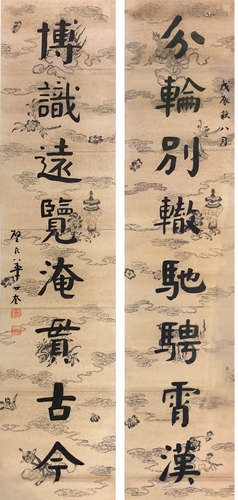 分輪別轍馳騁霄漢
戊辰秋八月
博識遠覽淹貫古今